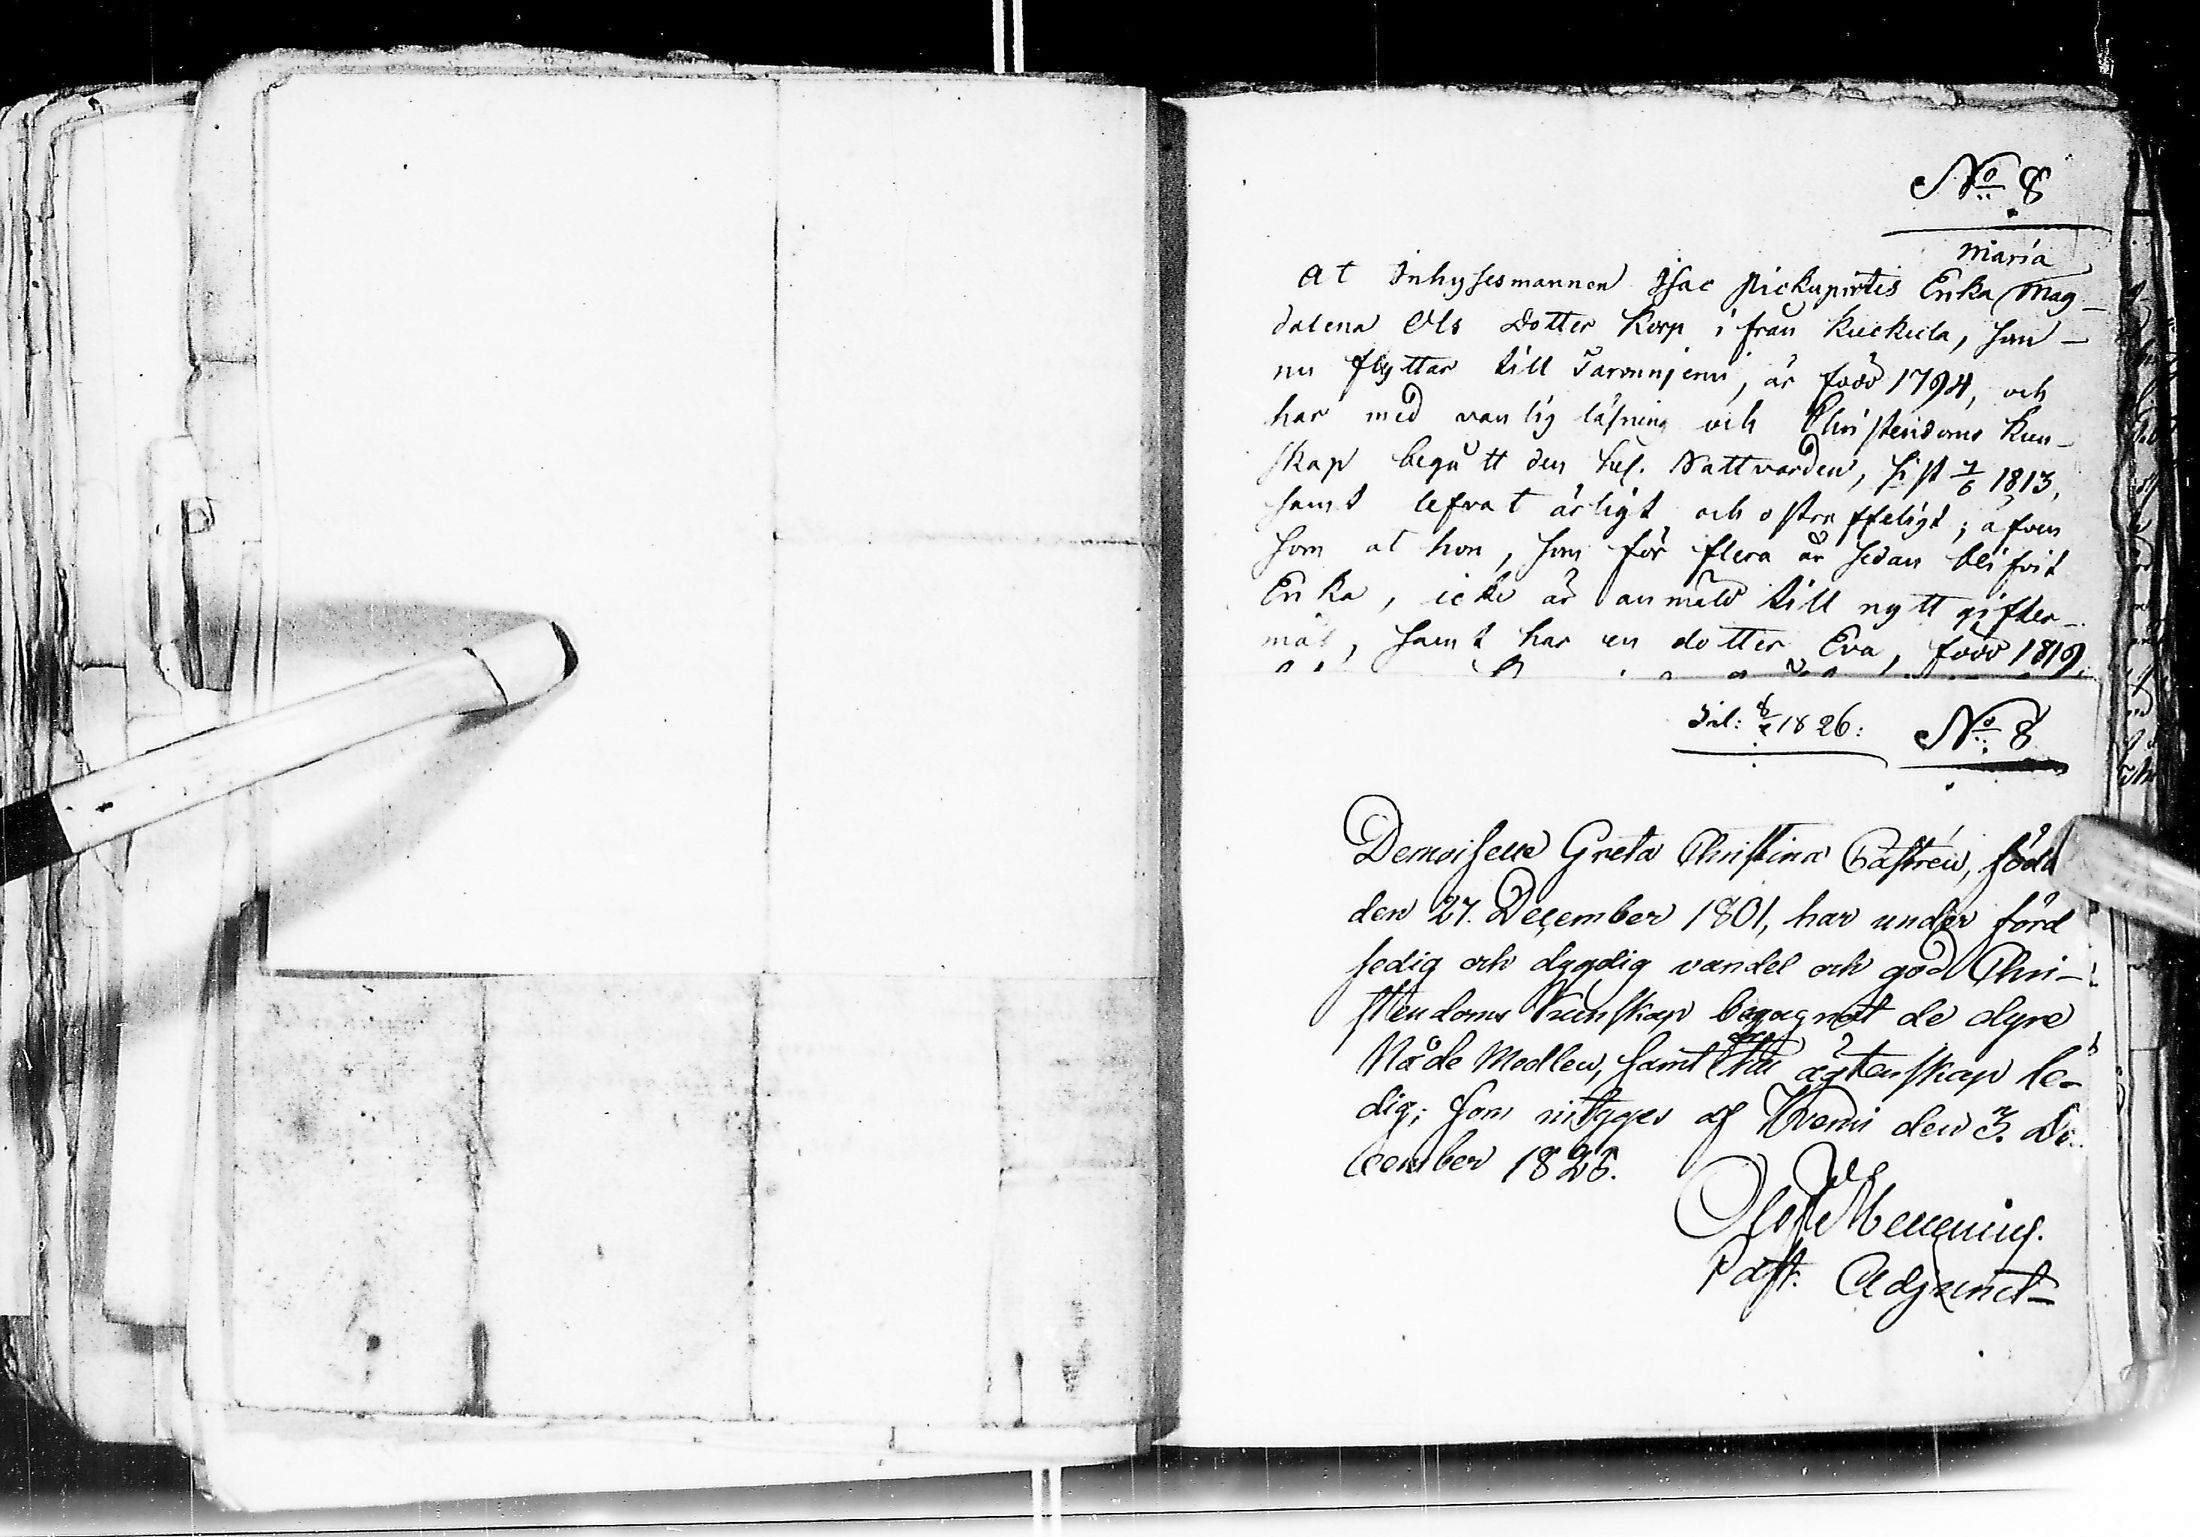 No 8
Maria
At Inhysesmannen Isac Pickupirtis Enka Mag-
dalena Ols Dotter Korp ifrån Kuckula, som
nu flyttar till Tarvunjemi, är född 1794, och
har med vanlig läsning och Christendoms kun-
skap begått den hel. Nattvarden, sist 7/6 1813,
samt lefvat ärligt och ostraffeligt; äfven
som at hon, som för flera år sedan blifvit
Enka, icke är anmäld till nytt gifter-
mål, samt har en dotter Eva, född 1819,
1826: No 8
Demoiselle Greta Christina Castrén, född
den 27. December 1801, har under förd
sedig och dygdig vandel och god Chri-
stendoms Kunskap begagnat de dyre
Nåde Medlen, samt till ägtenskap le-
dig; som intygges af Kemi den 3. De-
cember 1825.
Olof Mellenius.
Past. Adjunct